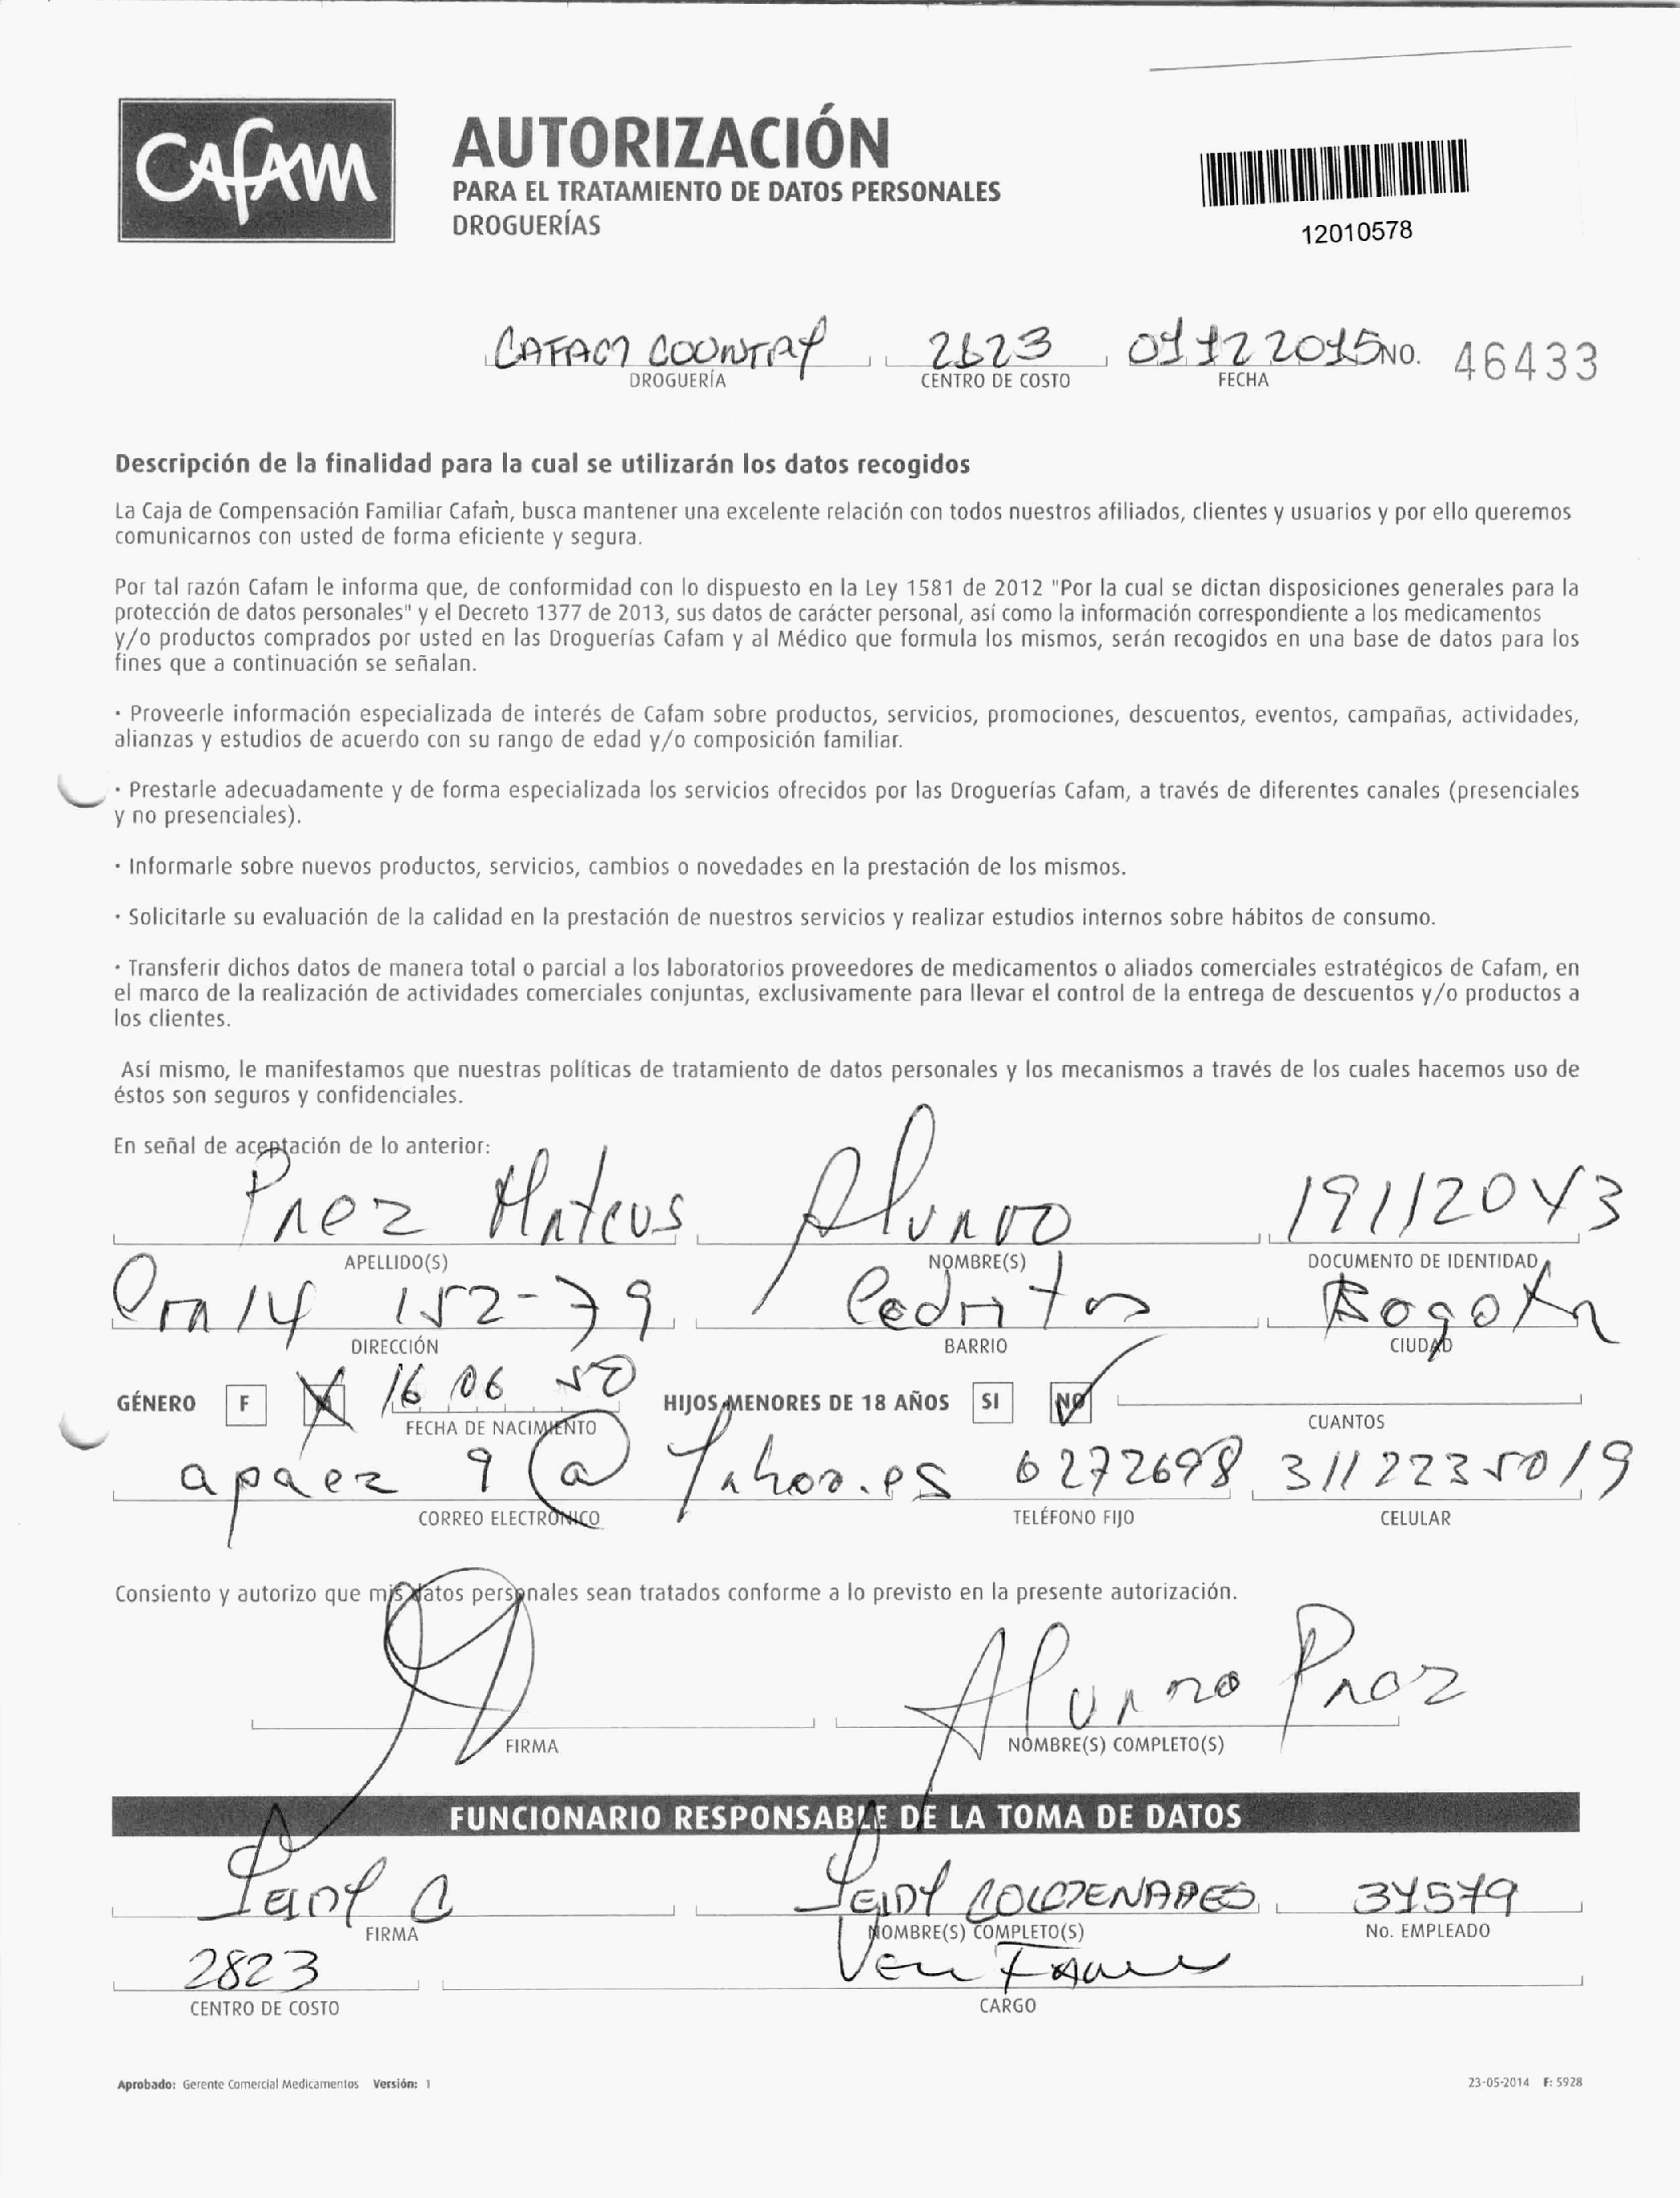 Cafam
AUTORIZACIÓN
PARA EL TRATAMIENTO DE DATOS PERSONALES
DROGUERÍAS
12010578
CAFAM COUNTRY 2823 01122015 NO. 46433
DROGUERÍA CENTRO DE COSTO FECHA
Descripción de la finalidad para la cual se utilizarán los datos recogidos
La Caja de Compensación Familiar Cafam, busca mantener una excelente relación con todos nuestros afiliados, clientes y usuarios y por ello queremos
comunicarnos con usted de forma eficiente y segura.
Por tal razón Cafam le informa que, de conformidad con lo dispuesto en la Ley 1581 de 2012 "Por la cual se dictan disposiciones generales para la
protección de datos personales" y el Decreto 1377 de 2013, sus datos de carácter personal, así como la información correspondiente a los medicamentos
y/o productos comprados por usted en las Droguerías Cafam y al Médico que formula los mismos, serán recogidos en una base de datos para los
fines que a continuación se señalan.
· Proveerle información especializada de interés de Cafam sobre productos, servicios, promociones, descuentos, eventos, campañas, actividades,
alianzas y estudios de acuerdo con su rango de edad y/o composición familiar.
· Prestarle adecuadamente y de forma especializada los servicios ofrecidos por las Droguerías Cafam, a través de diferentes canales (presenciales
y no presenciales).
· Informarle sobre nuevos productos, servicios, cambios o novedades en la prestación de los mismos.
· Solicitarle su evaluación de la calidad en la prestación de nuestros servicios y realizar estudios internos sobre hábitos de consumo.
· Transferir dichos datos de manera total o parcial a los laboratorios proveedores de medicamentos o aliados comerciales estratégicos de Cafam, en
el marco de la realización de actividades comerciales conjuntas, exclusivamente para llevar el control de la entrega de descuentos y/o productos a
los clientes.
Así mismo, le manifestamos que nuestras políticas de tratamiento de datos personales y los mecanismos a través de los cuales hacemos uso de
éstos son seguros y confidenciales.
En señal de aceptación de lo anterior:
Paez Mateus Alvaro 19112043
APELLIDO(S) NOMBRE(S) DOCUMENTO DE IDENTIDAD
Cra 14 152-79 Cedritos Bogota
DIRECCIÓN BARRIO CIUDAD
GÉNERO F M 16 06 50 HIJOS MENORES DE 18 AÑOS SI NO
FECHA DE NACIMIENTO CUANTOS
apaez 9@Yahoo.es 6272698 3112235019
CORREO ELECTRÓNICO TELÉFONO FIJO CELULAR
Consiento y autorizo que mis datos personales sean tratados conforme a lo previsto en la presente autorización.
Alvaro Paez
FIRMA NOMBRE(S) COMPLETO(S)
FUNCIONARIO RESPONSABLE DE LA TOMA DE DATOS
Leidy C LEIDY COLMENARES 34579
FIRMA NOMBRE(S) COMPLETO(S) No. EMPLEADO
2823
CENTRO DE COSTO CARGO
Aprobado: Gerente Comercial Medicamentos Versión: 1 23-05-2014 F: 5928